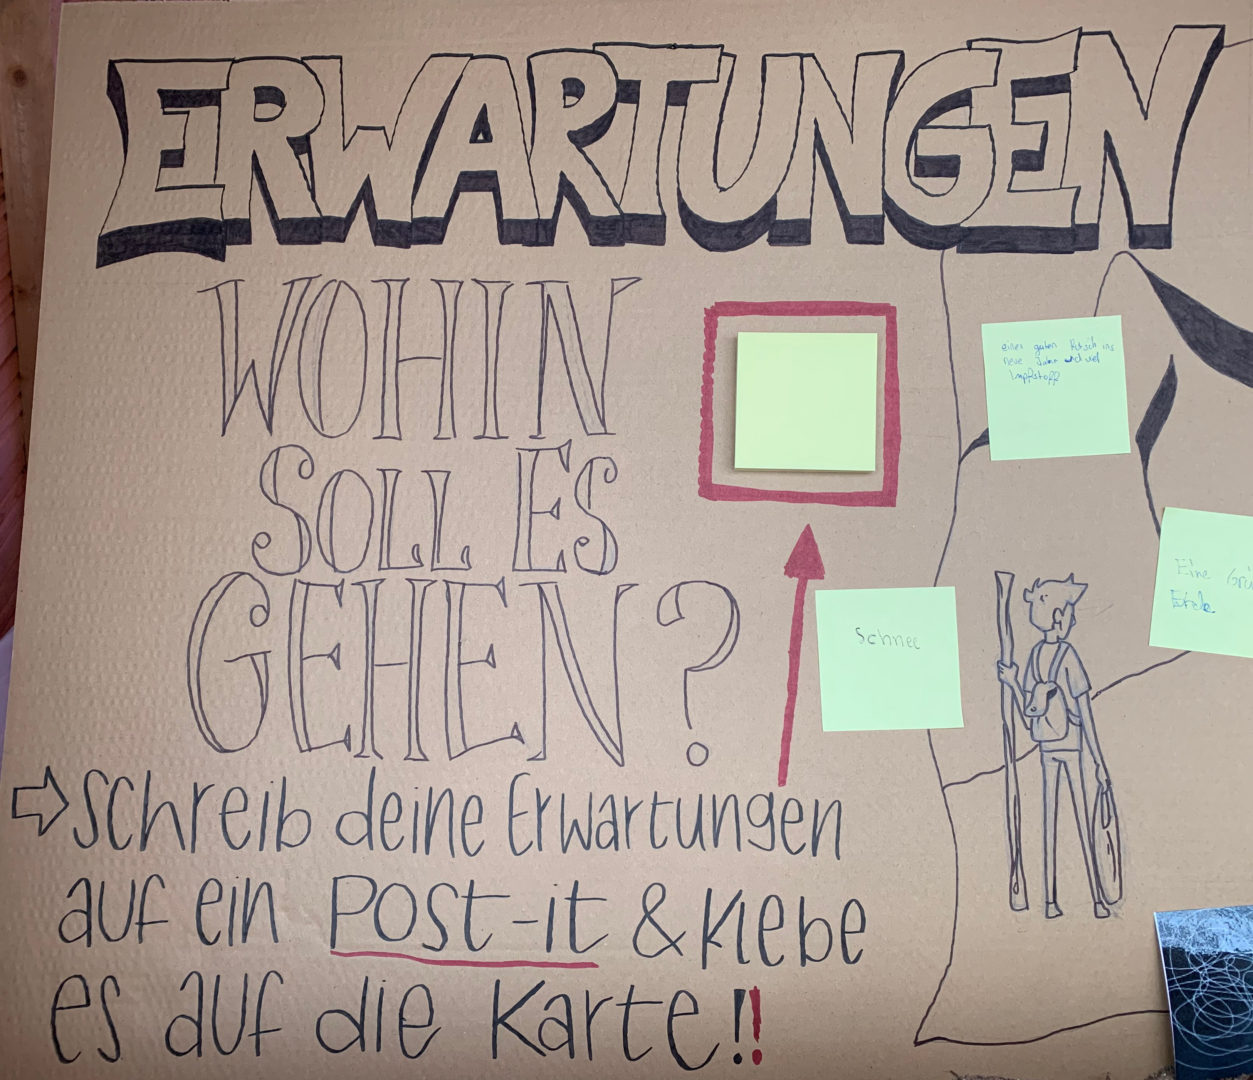 ERWARTUNGEN
WOHIN
SOLL ES
GEHEN?
Schreib deine Erwartungen
auf ein Post-it & klebe
es auf die Karte!!
einen guten Rutsch ins
neue Jahr und viel
Impfstoff
Schnee
Eine